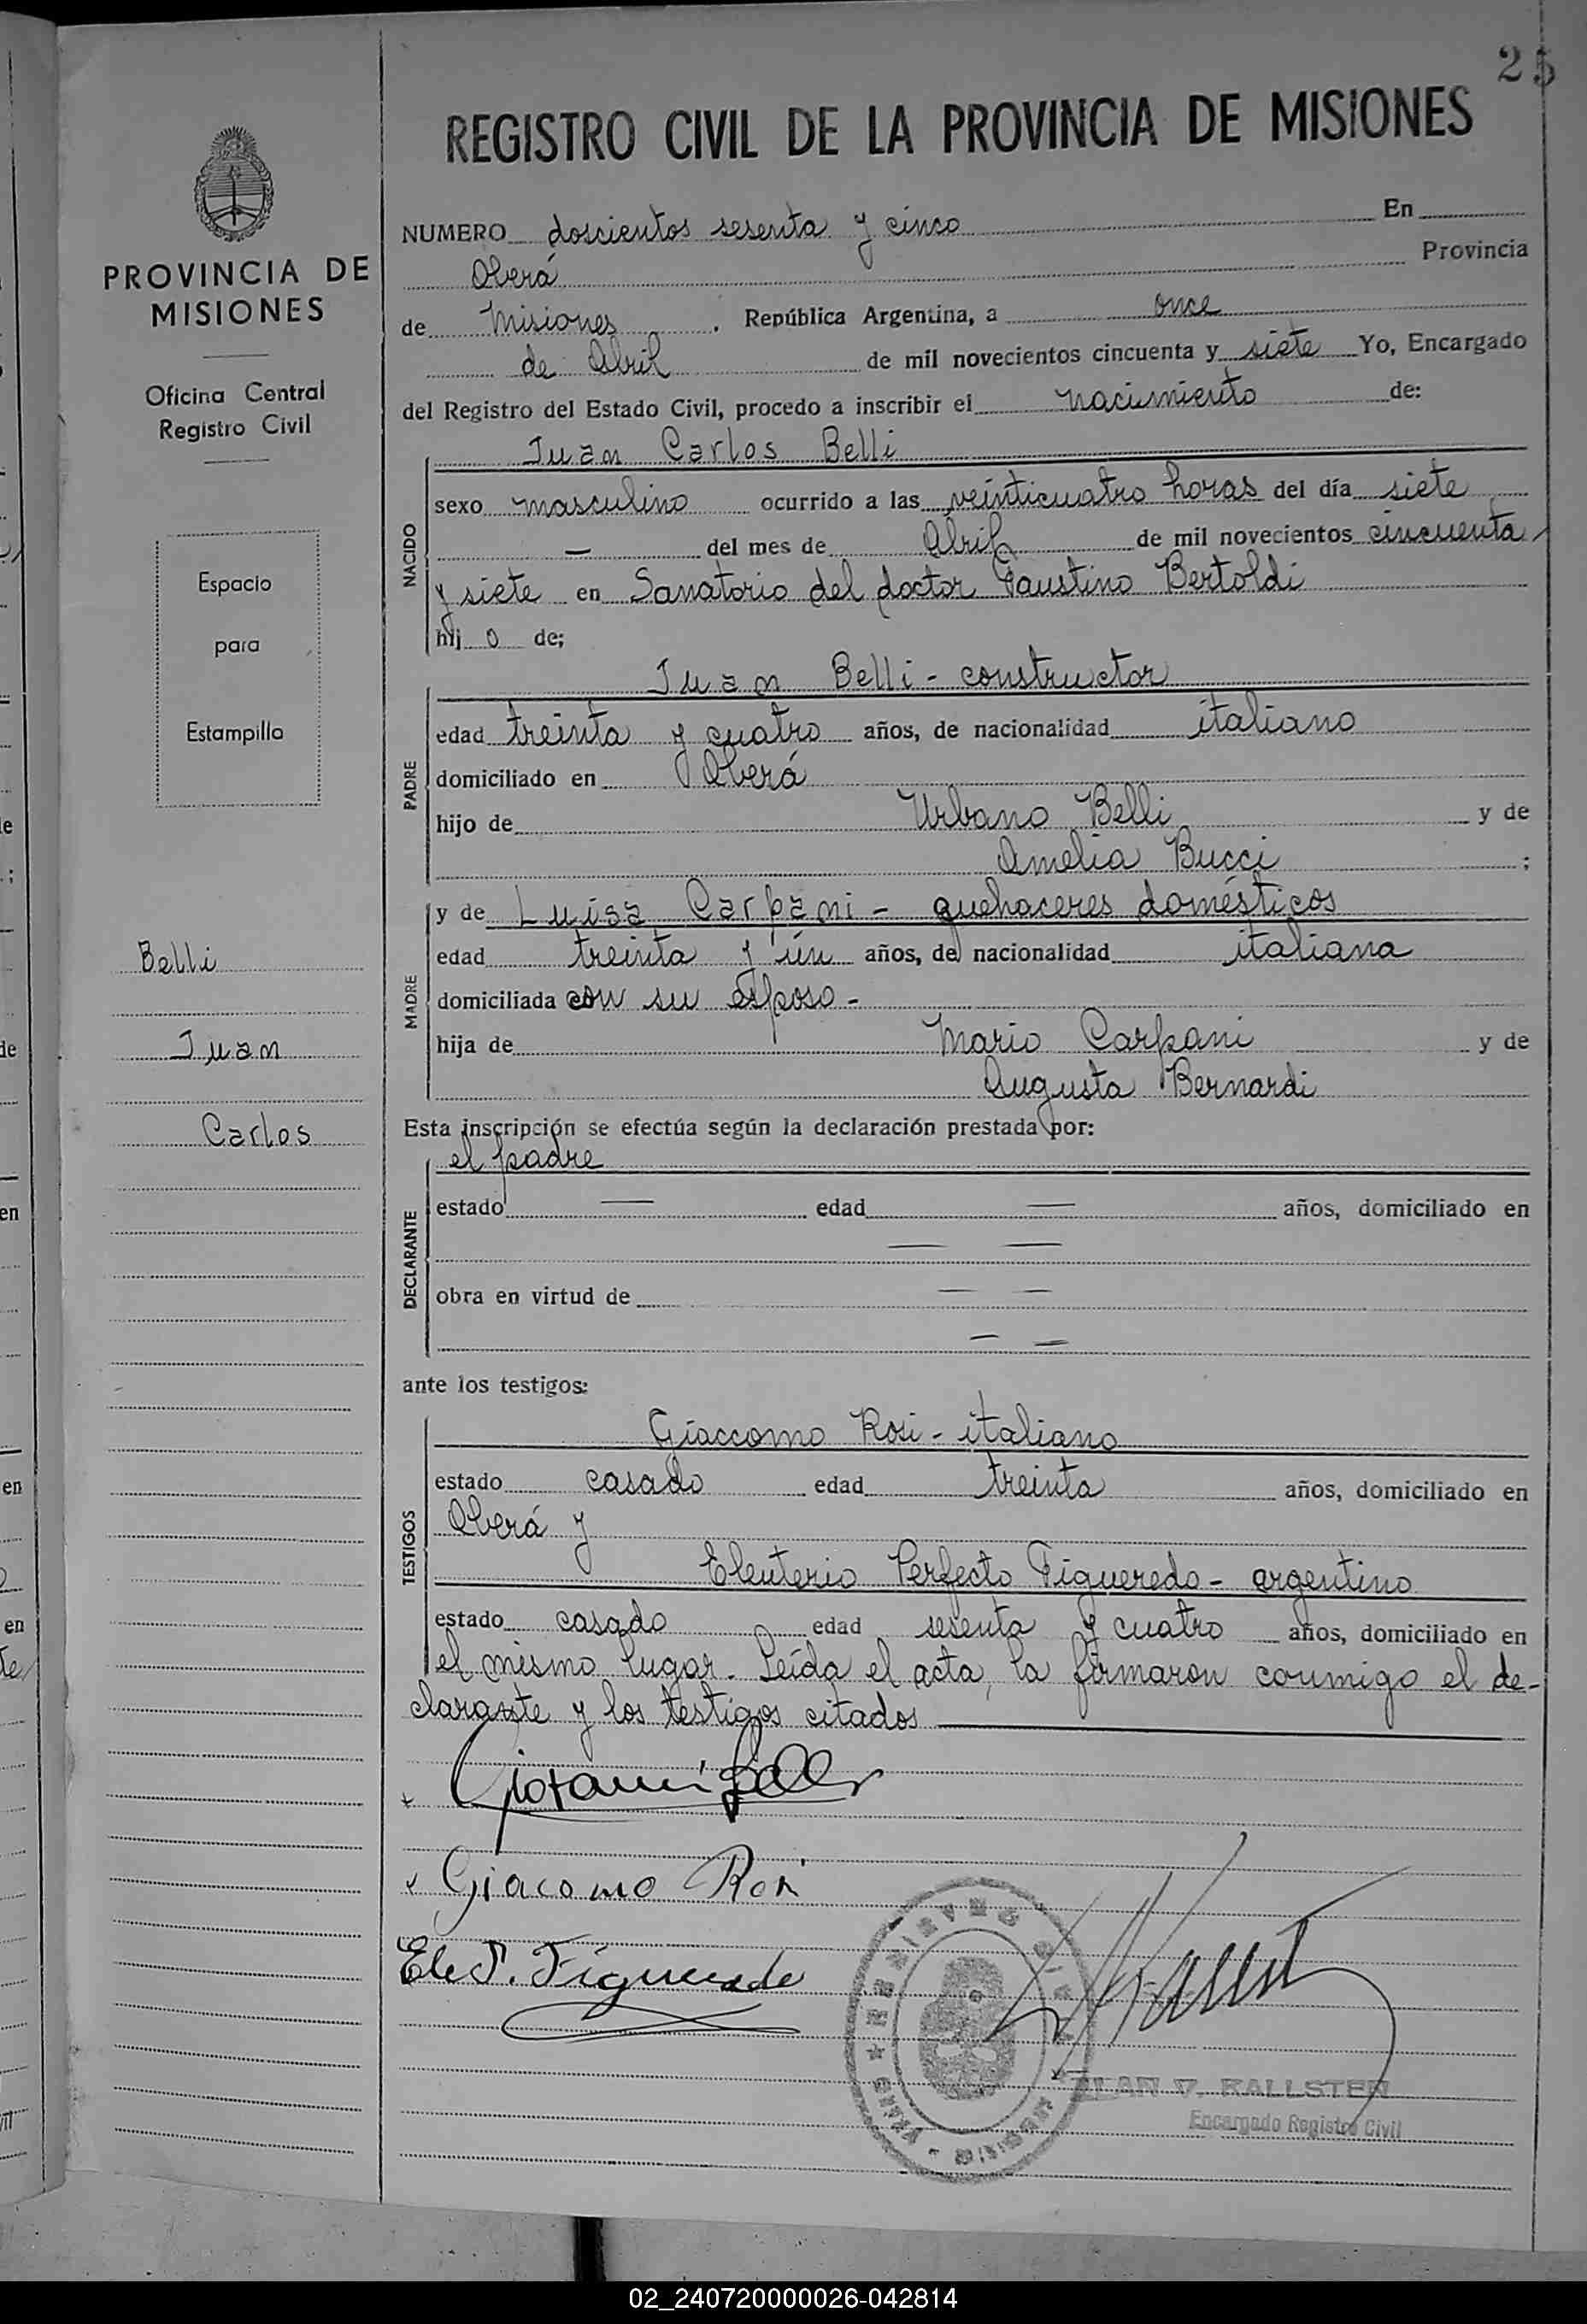 25
REGISTRO CIVIL DE LA PROVINCIA DE MISIONES
PROVINCIA DE
MISIONES
Oficina Central
Registro Civil
Espacio
para
Estampilla
Belli
Juan
Carlos
NUMERO doscientos sesenta y cinco En
Oberá Provincia
de Misiones. República Argentina, a once
de Abril de mil novecientos cincuenta y siete Yo, Encargado
del Registro del Estado Civil, procedo a inscribir el nacimiento de:
NACIDO
Juan Carlos Belli
sexo masculino ocurrido a las veinticuatro horas del día siete
— del mes de Abril de mil novecientos cincuenta
y siete en Sanatorio del doctor Faustino Bertoldi
hij o de;
PADRE
Juan Belli - constructor
edad treinta y cuatro años, de nacionalidad italiano
domiciliado en Oberá
hijo de Urbano Belli y de
Amelia Bucci ;
MADRE
y de Luisa Carpani - quehaceres domésticos
edad treinta y ún años, de nacionalidad italiana
domiciliada con su esposo -
hija de Mario Carpani y de
Augusta Bernardi
Esta inscripción se efectúa según la declaración prestada por:
DECLARANTE
el padre
estado — edad — años, domiciliado en
— —
obra en virtud de — —
— —
ante los testigos:
TESTIGOS
Giaccomo Rosi - italiano
estado casado edad treinta años, domiciliado en
Oberá y
Eleuterio Perfecto Figueredo - argentino
estado casado edad sesenta y cuatro años, domiciliado en
el mismo lugar. Leída el acta, la firmaron conmigo el de-
clarante y los testigos citados
Giovanni Belli
Giacomo Rosi
Ele P. Figueredo
REGISTRO CIVIL
OBERA - MISIONES
V. KALLSTEN
Encargado Registro Civil
02_240720000026-042814